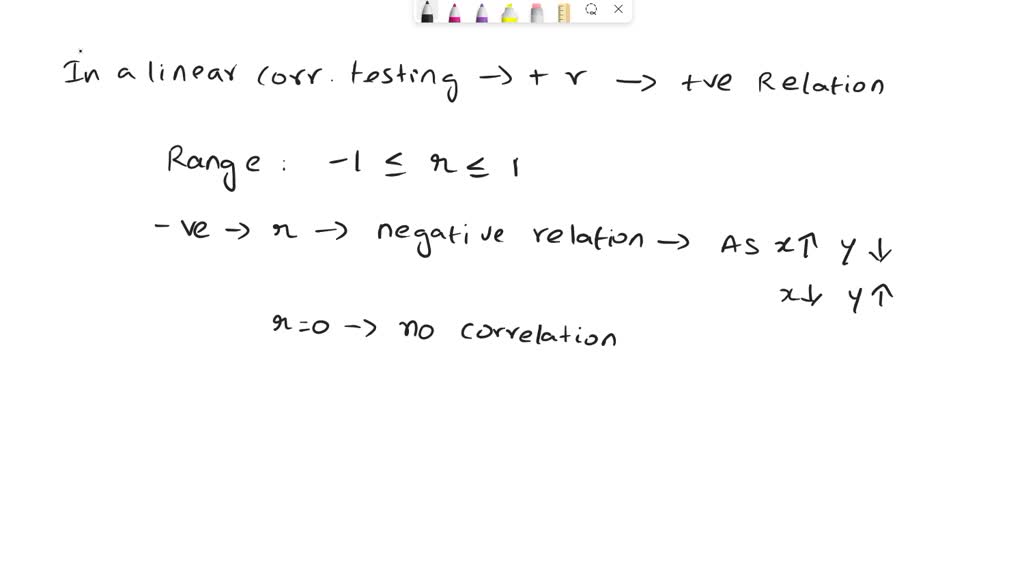 In a linear corr. testing → + r → +ve Relation
Range: -1 ≤ r ≤ 1
-ve → r → negative relation → As x↑ y↓
x↓ y↑
r=0 → no correlation